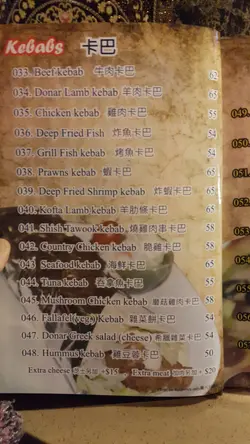 Kebabs 卡巴
033. Beef kebab 牛肉卡巴 62
034. Donar Lamb kebab 羊肉卡巴 65
035. Chicken kebab 雞肉卡巴 55
036. Deep Fried Fish 炸魚卡巴 54
037. Grill Fish kebab 烤魚卡巴 54
038. Prawns kebab 蝦卡巴 65
039. Deep Fried Shrimp kebab 炸蝦卡巴 65
040. Kofta Lamb kebab 羊肋條卡巴 65
041. Shish Tawook kebab 燒雞肉串卡巴 58
042. Country Chicken kebab 脆雞卡巴 58
043. Seafood kebab 海鮮卡巴 55
044. Tuna kebab 吞拿魚卡巴 55
045. Mushroom Chicken kebab 蘑菇雞肉卡巴 58
046. Fallafel(veg.) Kebab 雜菜餅卡巴 54
047. Donar Greek salad (cheese) 希臘雜菜卡巴 54
048. Hummus kebab 雞豆蓉卡巴 50
Extra cheese +$15
Extra meat + $20
049.
050